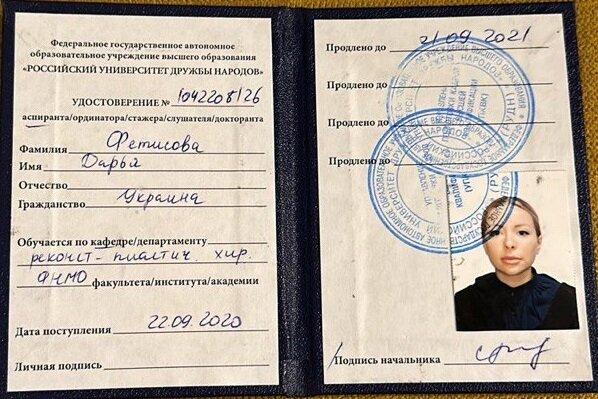 Федеральное государственное автономное
образовательное учреждение высшего образования
«РОССИЙСКИЙ УНИВЕРСИТЕТ ДРУЖБЫ НАРОДОВ»
УДОСТОВЕРЕНИЕ № 1042208126
аспиранта/ординатора/стажера/слушателя/докторанта
Фамилия Фетисова
Имя Дарья
Отчество
Гражданство Украина
Обучается по кафедре/департаменту
реконст- пластич. хир.
ФНМО факультета/института/академии
Дата поступления 22.09.2020
Личная подпись
Продлено до 21.09.2021
Продлено до
Продлено до
Продлено до
Подпись начальника